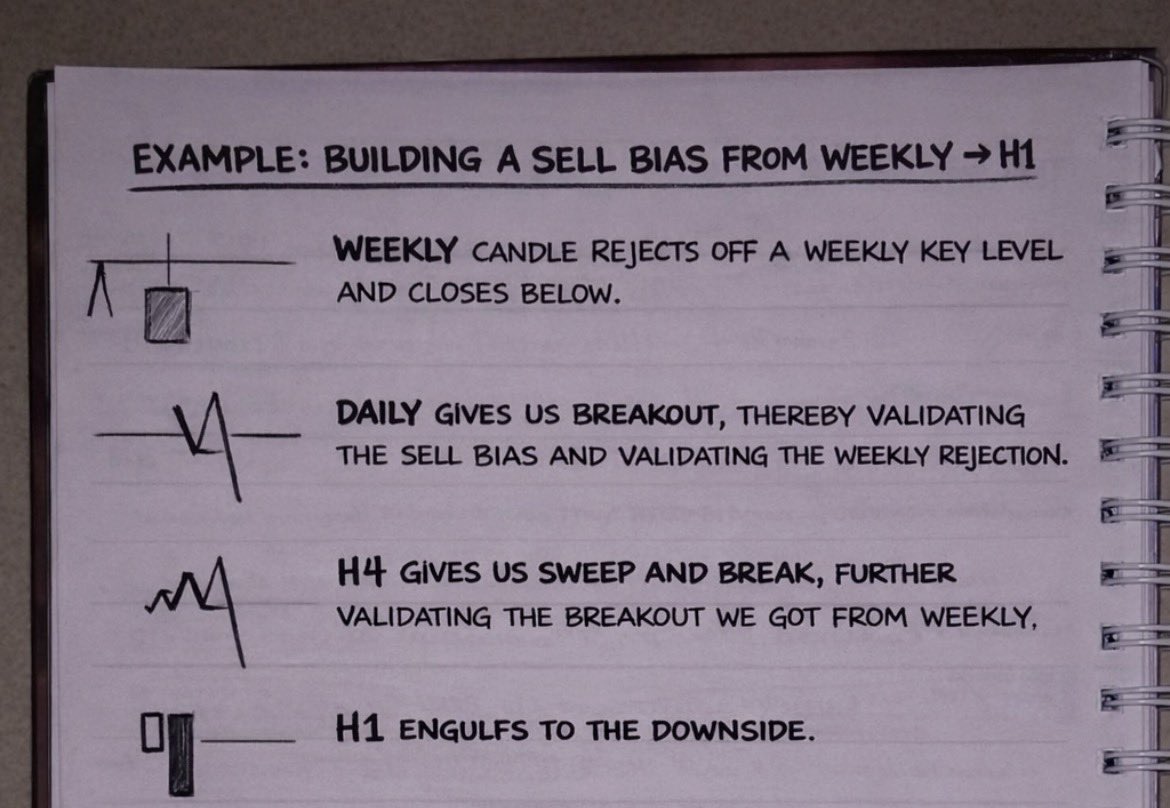 EXAMPLE: BUILDING A SELL BIAS FROM WEEKLY → H1
WEEKLY CANDLE REJECTS OFF A WEEKLY KEY LEVEL
AND CLOSES BELOW.
DAILY GIVES US BREAKOUT, THEREBY VALIDATING
THE SELL BIAS AND VALIDATING THE WEEKLY REJECTION.
H4 GIVES US SWEEP AND BREAK, FURTHER
VALIDATING THE BREAKOUT WE GOT FROM WEEKLY,
H1 ENGULFS TO THE DOWNSIDE.